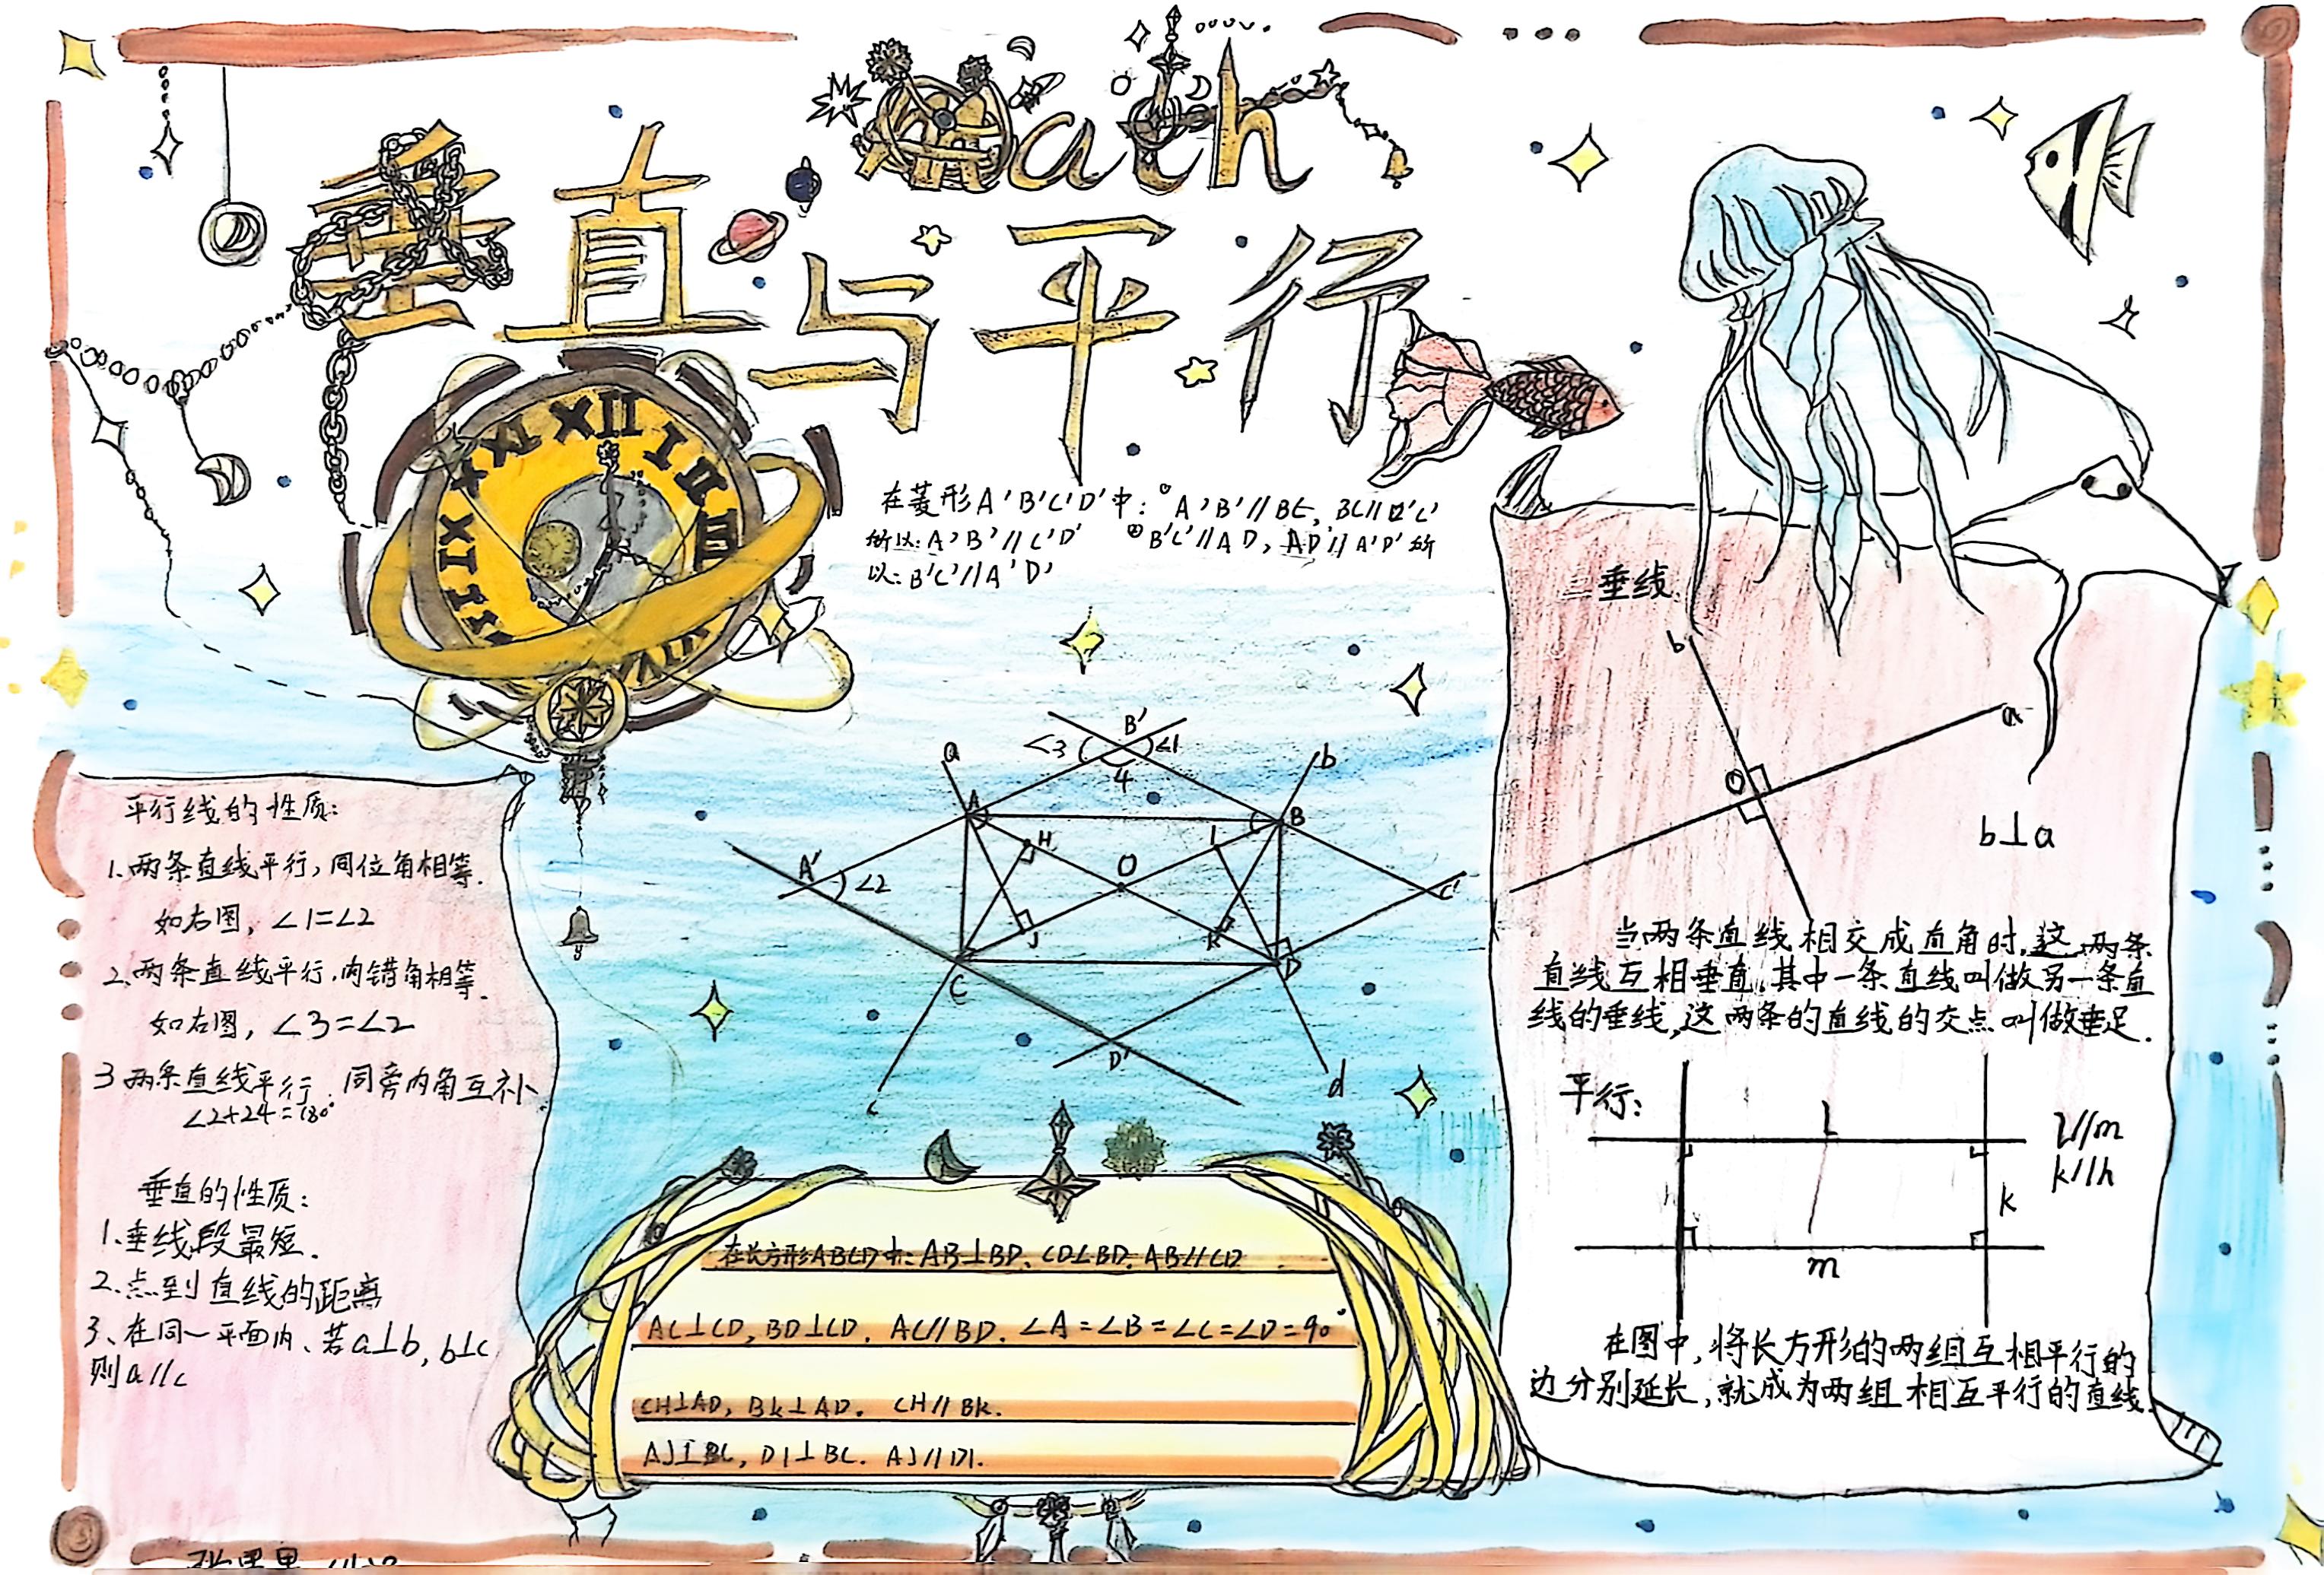 Math
垂直与平行
XII
I
II
III
VII
VIII
IX
X
XI
在菱形A'B'C'D'中:①A'B'//BC, BC//D'C'
所以:A'B'//C'D' ②B'C'//AD, AD//A'D'所
以:B'C'//A'D'
平行线的性质:
1.两条直线平行,同位角相等.
如右图,∠1=∠2
2.两条直线平行,内错角相等.
如右图,∠3=∠2
3 两条直线平行.同旁内角互补.
∠2+∠4=180°
垂直的性质:
1.垂线段最短.
2.点到直线的距离
3、在同一平面内、若a⊥b, b⊥c
则a//c
B'
∠3
∠1
4
a
b
A
B
H
I
O
A'
∠2
C'
J
K
C
D
D'
c
d
在长方形ABCD中:AB⊥BD、CD⊥BD. AB//CD
AC⊥CD, BD⊥CD. AC//BD. ∠A=∠B=∠C=∠D=90°
CH⊥AD, BK⊥AD. CH//BK.
AJ⊥BC, DI⊥BC. AJ//DI.
垂线
b
a
O
b⊥a
当两条直线相交成直角时,这两条
直线互相垂直,其中一条直线叫做另一条直
线的垂线,这两条的直线的交点叫做垂足.
平行:
L
l//m
k//h
k
m
在图中,将长方形的两组互相平行的
边分别延长,就成为两组相互平行的直线.